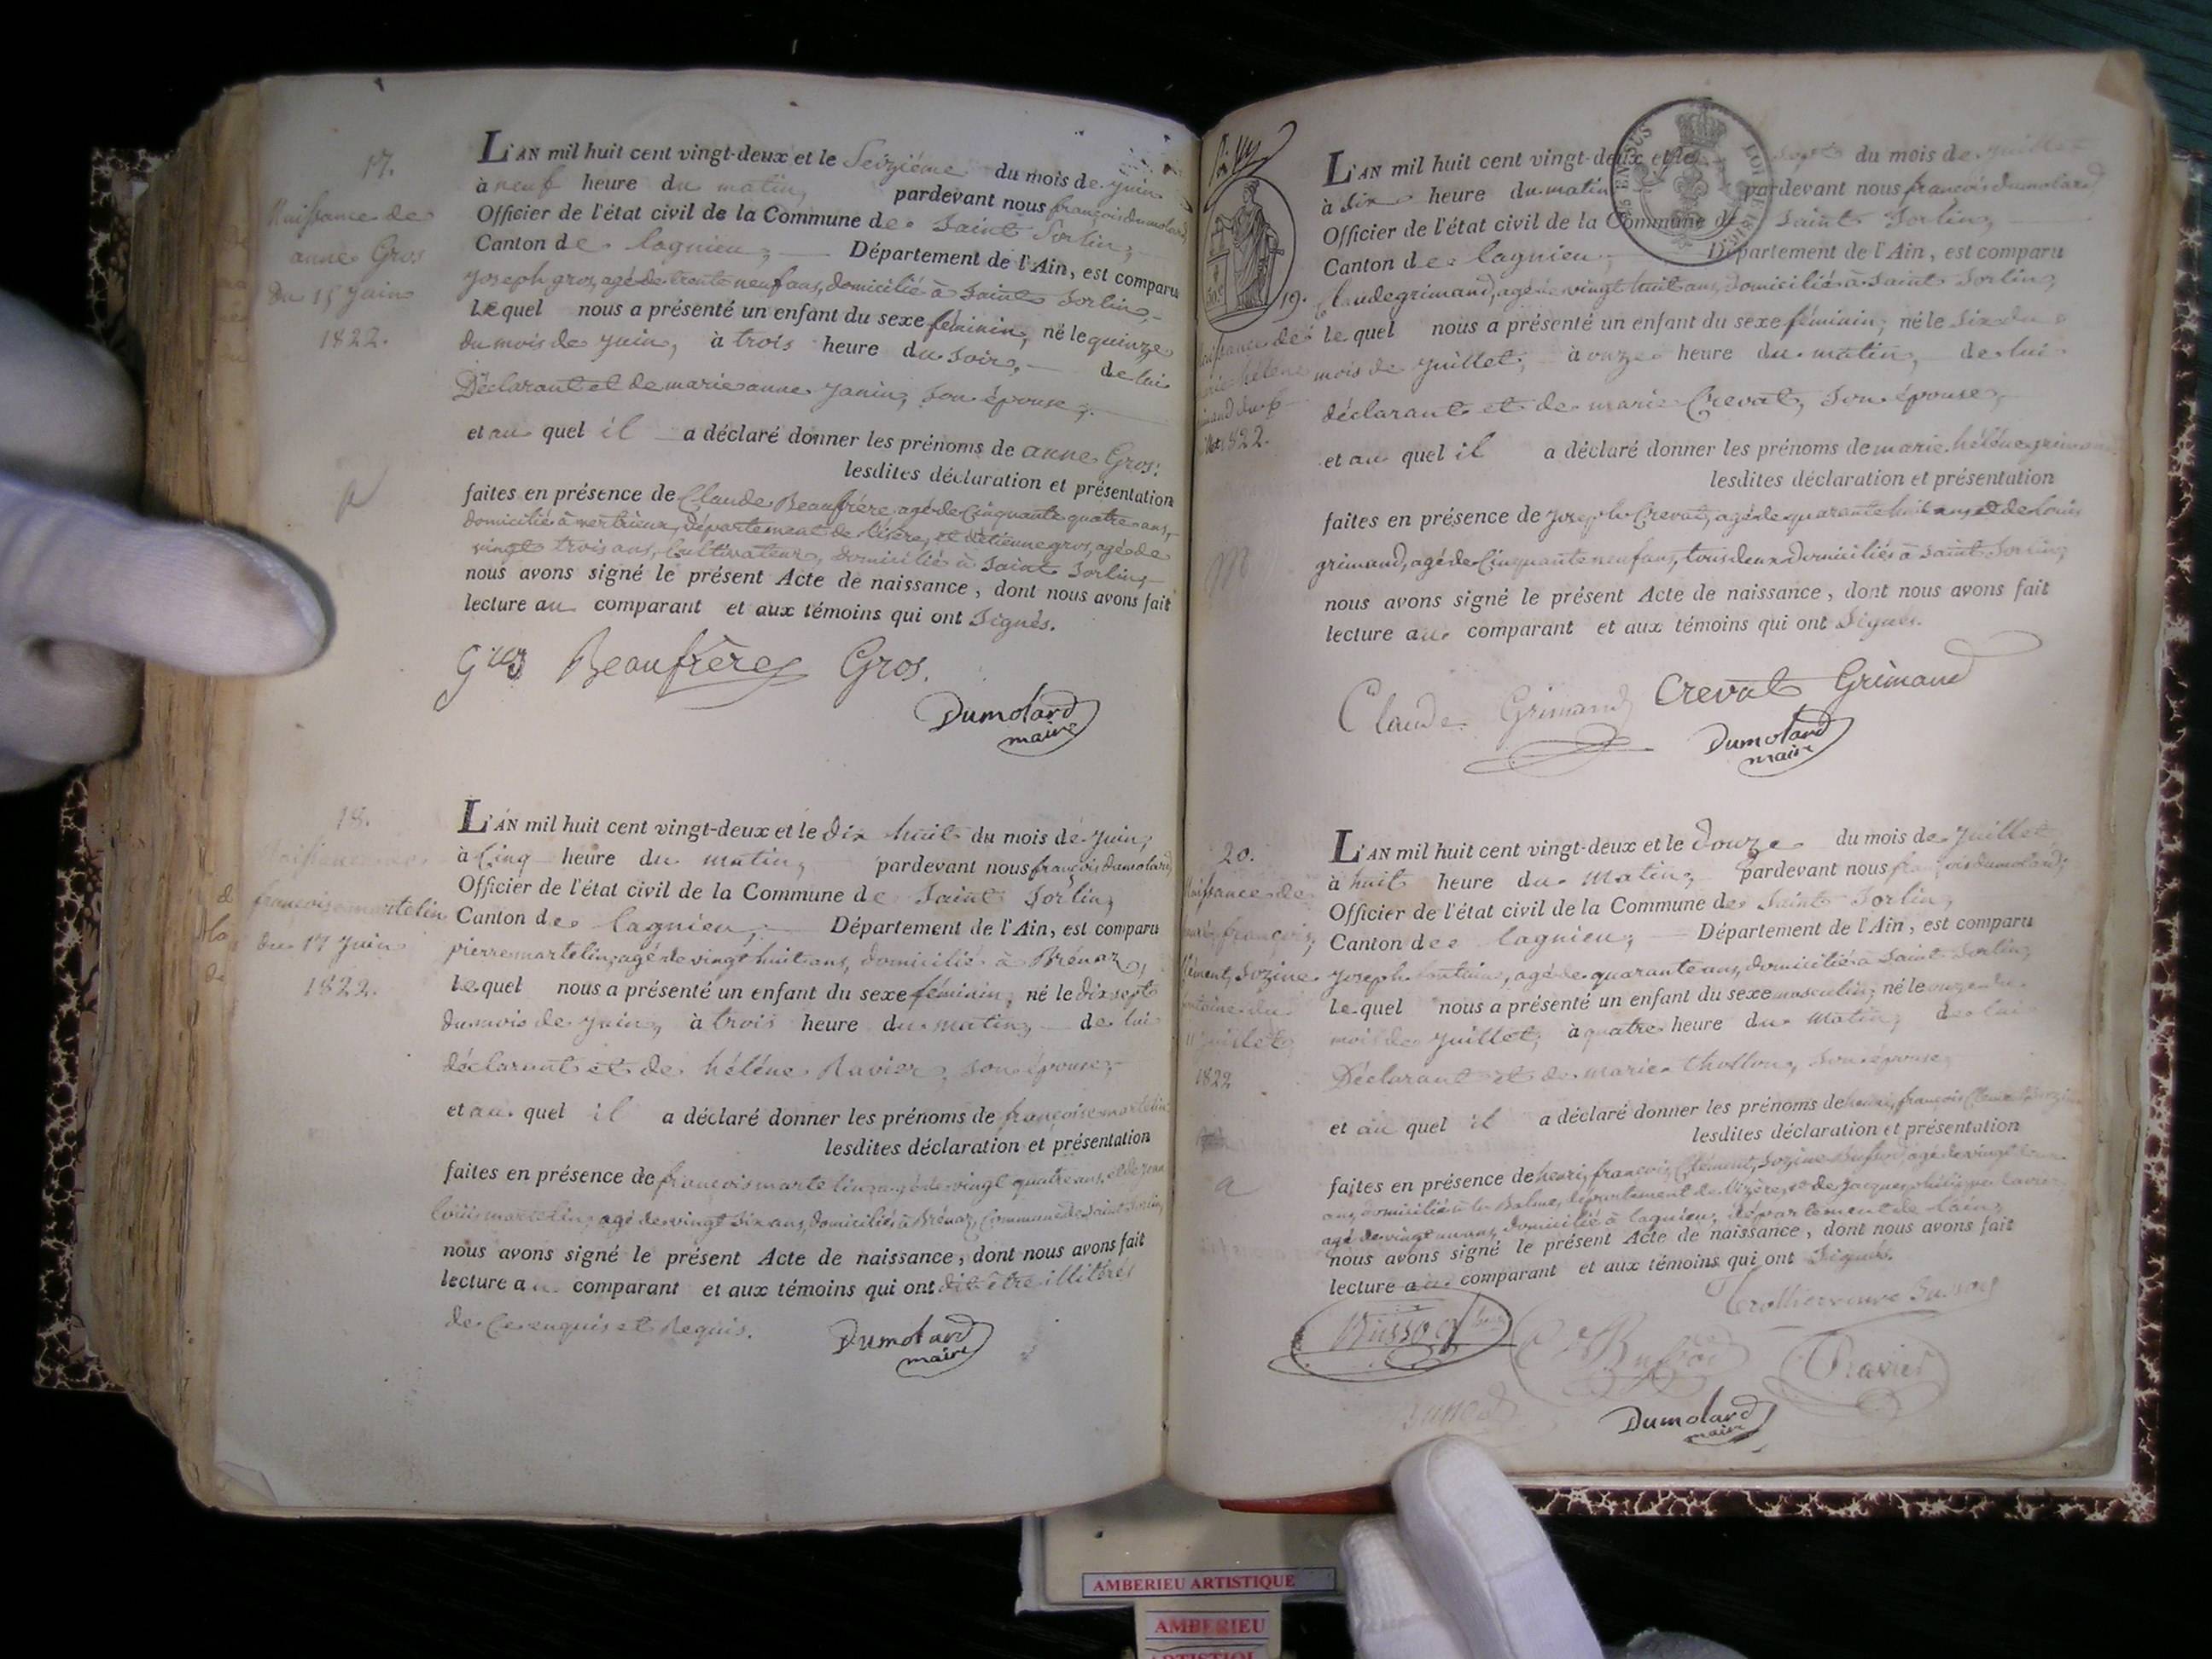 17.
Naissance de
anne Gros
Du 15 Juin
1822.
L'AN mil huit cent vingt-deux et le Seizième du mois de juin
à neuf heure du matin, pardevant nous françois dumolard,
Officier de l'état civil de la Commune de Saint Sorlin,
Canton de lagnieu, Département de l'Ain, est comparu
joseph gros, agé de trente neuf ans, domicilié à Saint Sorlin,
Lequel nous a présenté un enfant du sexe féminin, né le quinze
du mois de juin, à trois heure du soir, de lui
Déclarant et de marie anne janin, son épouse,
et au quel il a déclaré donner les prénoms de anne Gros.
lesdites déclaration et présentation
faites en présence de Claude Beaufrère agé de Cinquante quatre ans,
domicilié à vertrieux, département de l'isère, et d'étienne gros, agé de
vingt trois ans, Cultivateur, domicilié à Saint Sorlin,
nous avons signé le présent Acte de naissance, dont nous avons fait
lecture au comparant et aux témoins qui ont Signés.
Gros Beaufrère Gros.
Dumolard
maire
18.
Naissance de
françoise martelin
du 17 Juin
1822.
L'AN mil huit cent vingt-deux et le dix huit du mois de juin,
à Cinq heure du matin, pardevant nous françois dumolard,
Officier de l'état civil de la Commune de Saint Sorlin,
Canton de lagnieu, Département de l'Ain, est comparu
pierre martelin, agé de vingt huit ans, domicilié à Brénaz,
Lequel nous a présenté un enfant du sexe féminin, né le dix sept
du mois de juin, à trois heure du matin, de lui
déclarant et de hélène Ravier, son épouse,
et au quel il a déclaré donner les prénoms de françoise martelin
lesdites déclaration et présentation
faites en présence de françois martelin, agé de vingt quatre ans, et de jean
louis martelin, agé de vingt Six ans, domiciliés à Brénaz, Commune de Saint Sorlin,
nous avons signé le présent Acte de naissance, dont nous avons fait
lecture au comparant et aux témoins qui ont dit être illitérés
de Ce enquis et Requis.
Dumolard
maire
19.
hélène
1822.
L'AN mil huit cent vingt-deux et le sept du mois de juillet
à Six heure du matin pardevant nous françois dumolard
Officier de l'état civil de la Commune de Saint Sorlin,
Canton de lagnieu, Département de l'Ain, est comparu
Claude grimand, agé de vingt huit ans, domicilié à Saint Sorlin,
Lequel nous a présenté un enfant du sexe féminin, né le Six du
mois de juillet, à onze heure du matin, de lui
déclarant et de marie Crevat, son épouse,
et au quel il a déclaré donner les prénoms de marie hélène grimand
lesdites déclaration et présentation
faites en présence de joseph Crevat, agé de quarante huit ans, et de louis
grimand, agé de Cinquante neuf ans, tous deux domiciliés à Saint Sorlin,
nous avons signé le présent Acte de naissance, dont nous avons fait
lecture au comparant et aux témoins qui ont Signés.
Claude Grimand Crevat Grimand
Dumolard
maire
20.
Naissance de
françois,
Clément, Sozine
fontaine du
11 juillet
1822
L'AN mil huit cent vingt-deux et le Douze du mois de juillet
à huit heure du matin, pardevant nous françois dumolard,
Officier de l'état civil de la Commune de Saint Sorlin,
Canton de lagnieu, Département de l'Ain, est comparu
joseph fontaine, agé de quarante ans, domicilié à Saint Sorlin,
Lequel nous a présenté un enfant du sexe masculin, né le onze du
mois de juillet, à quatre heure du matin, de lui
Déclarant et de marie thollon, son épouse,
et au quel il a déclaré donner les prénoms de henri, françois Clément Sozine
lesdites déclaration et présentation
faites en présence de henri, françois, Clément, Sozine agé de vingt
ans, domicilié à la Balme, département de l'izère, et de jacques philippe ravier
agé de vingt ans, domicilié à lagnieu, département de l'ain,
nous avons signé le présent Acte de naissance, dont nous avons fait
lecture au comparant et aux témoins qui ont Signés.
Ravier
Dumolard
maire
AMBERIEU ARTISTIQUE
AMBERIEU